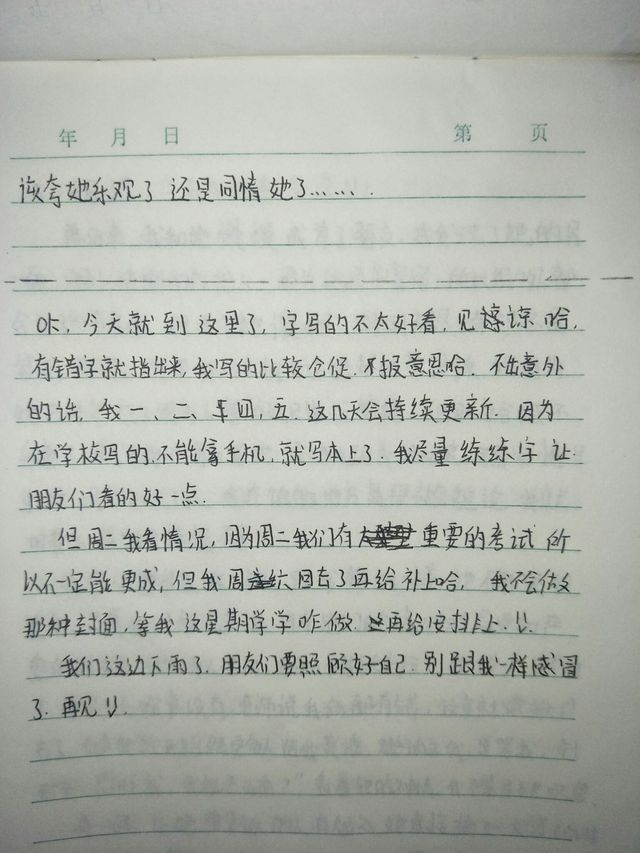 年 月 日 第 页
该夸她乐观了 还是同情她了……
OK,今天就到这里了,字写的不太好看,见谅哈,
有错字就指出来,我写的比较仓促.不报意思哈.不出意外
的话,我一、二、三四,五.这几天会持续更新.因为
在学校写的,不能拿手机,就写本上了.我尽量练练字 让
朋友们看的好一点.
但周二我看情况,因为周二我们有重要的考试 所
以不一定能更成,但我周六回去了再给补上哈,我不会做
那种封面,等我这星期学学咋做.再给安排上.!!
我们这边下雨了.朋友们要照顾好自己.别跟我一样感冒
了.再见!!